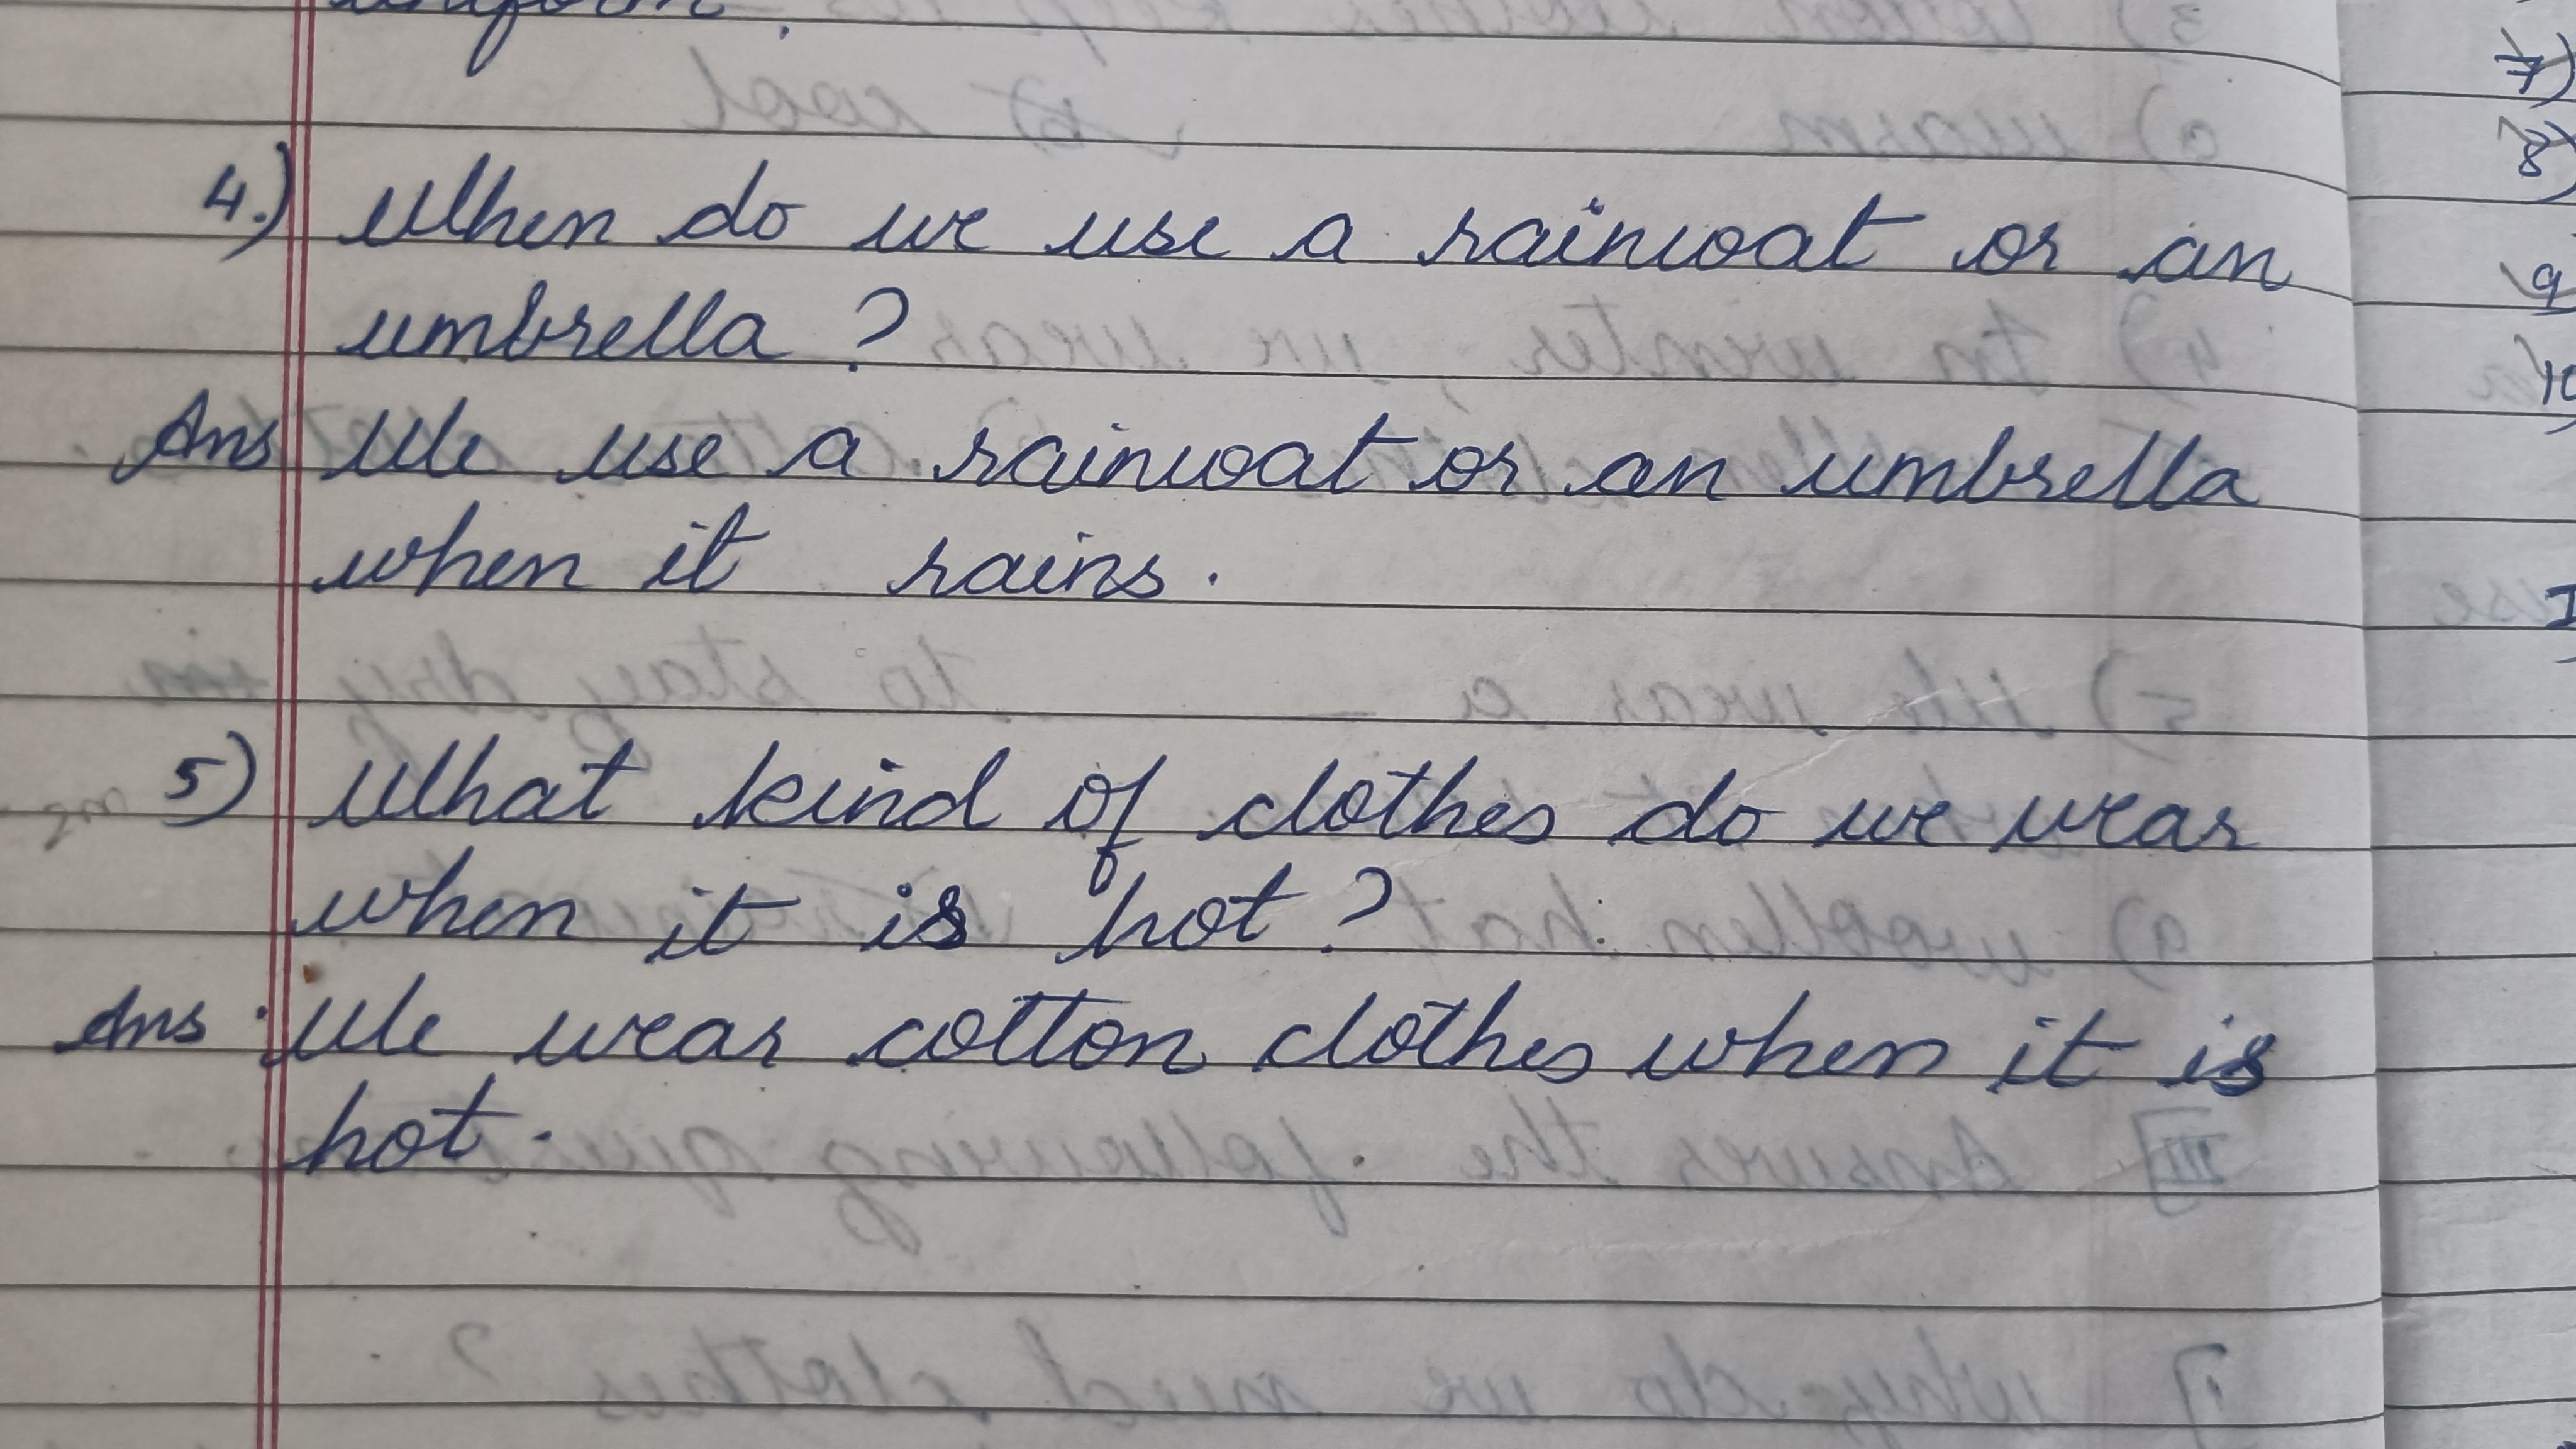 uniform.
4.) When do we use a raincoat or an
umbrella ?
Ans We use a raincoat or an umbrella
when it rains.
5) What kind of clothes do we wear
when it is hot ?
Ans. We wear cotton clothes when it is
hot.
7)
8)
9
10